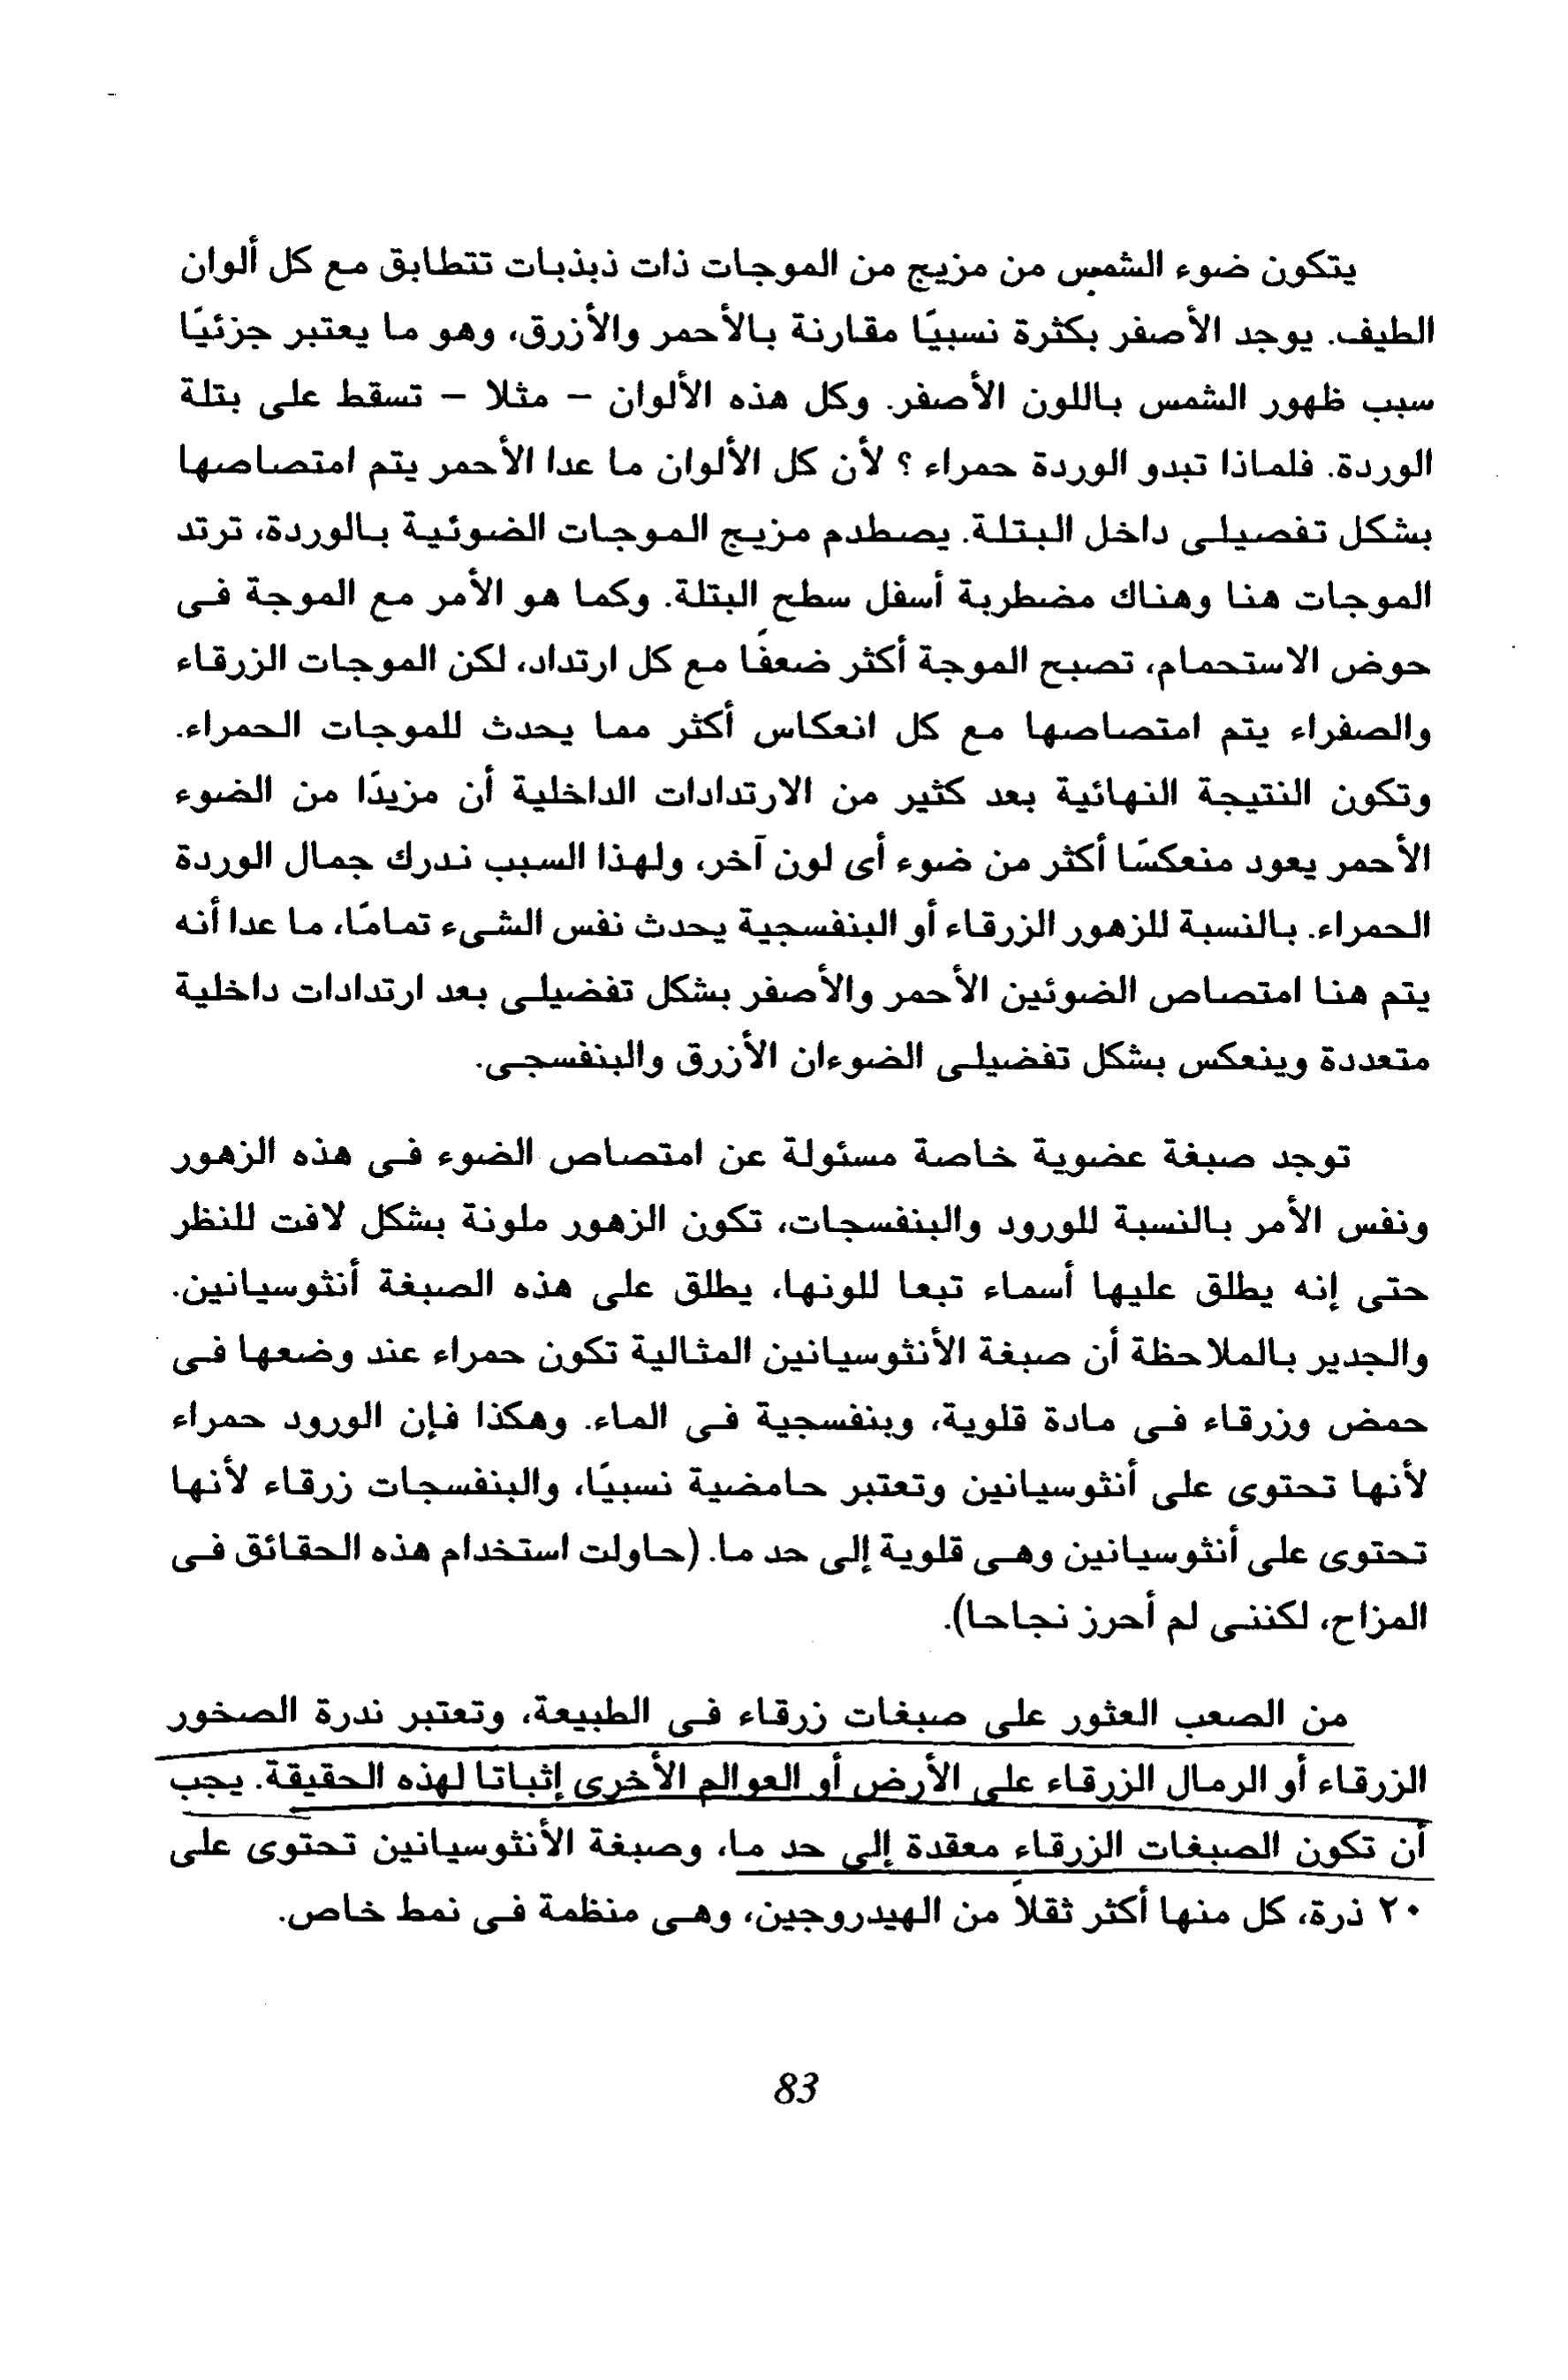 يتكون ضوء الشمس من مزيج من الموجات ذات ذبذبات تتطابق مع كل ألوان
الطيف. يوجد الأصفر بكثرة نسبيًا مقارنة بالأحمر والأزرق، وهو ما يعتبر جزئيًا
سبب ظهور الشمس باللون الأصفر. وكل هذه الألوان – مثلا – تسقط على بتلة
الوردة. فلماذا تبدو الوردة حمراء ؟ لأن كل الألوان ما عدا الأحمر يتم امتصاصها
بشكل تفصيلى داخل البتلة. يصطدم مزيج الموجات الضوئية بالوردة، ترتد
الموجات هنا وهناك مضطربة أسفل سطح البتلة. وكما هو الأمر مع الموجة فى
حوض الاستحمام، تصبح الموجة أكثر ضعفًا مع كل ارتداد، لكن الموجات الزرقاء
والصفراء يتم امتصاصها مع كل انعكاس أكثر مما يحدث للموجات الحمراء.
وتكون النتيجة النهائية بعد كثير من الارتدادات الداخلية أن مزيدًا من الضوء
الأحمر يعود منعكسًا أكثر من ضوء أى لون آخر، ولهذا السبب ندرك جمال الوردة
الحمراء. بالنسبة للزهور الزرقاء أو البنفسجية يحدث نفس الشىء تمامًا، ما عدا أنه
يتم هنا امتصاص الضوئين الأحمر والأصفر بشكل تفضيلى بعد ارتدادات داخلية
متعددة وينعكس بشكل تفضيلى الضوءان الأزرق والبنفسجى.
توجد صبغة عضوية خاصة مسئولة عن امتصاص الضوء فى هذه الزهور
ونفس الأمر بالنسبة للورود والبنفسجات، تكون الزهور ملونة بشكل لافت للنظر
حتى إنه يطلق عليها أسماء تبعا للونها، يطلق على هذه الصبغة أنثوسيانين.
والجدير بالملاحظة أن صبغة الأنثوسيانين المثالية تكون حمراء عند وضعها فى
حمض وزرقاء فى مادة قلوية، وبنفسجية فى الماء. وهكذا فإن الورود حمراء
لأنها تحتوى على أنثوسيانين وتعتبر حامضية نسبيًا، والبنفسجات زرقاء لأنها
تحتوى على أنثوسيانين وهى قلوية إلى حد ما. (حاولت استخدام هذه الحقائق فى
المزاح، لكننى لم أحرز نجاحا).
من الصعب العثور على صبغات زرقاء فى الطبيعة، وتعتبر ندرة الصخور
الزرقاء أو الرمال الزرقاء على الأرض أو العوالم الأخرى إثباتا لهذه الحقيقة. يجب
أن تكون الصبغات الزرقاء معقدة إلى حد ما، وصبغة الأنثوسيانين تحتوى على
٢٠ ذرة، كل منها أكثر ثقلاً من الهيدروجين، وهى منظمة فى نمط خاص.
83